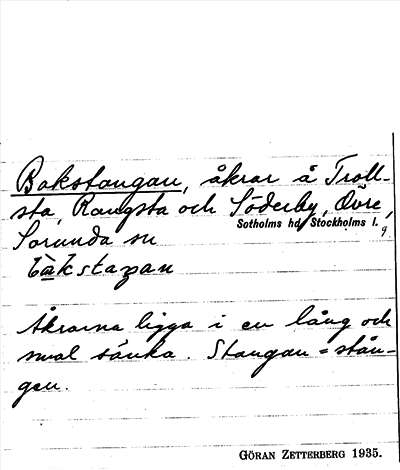 Bakstangan, åkrar å Troll-
sta, Rangsta och Söderby, Övre,
Sotholms hd, Stockholms l.
Sorunda sn
Åkrarna ligga i en lång och
smal sänka. Stangan = stån-
gen.
GÖRAN ZETTERBERG 1935.